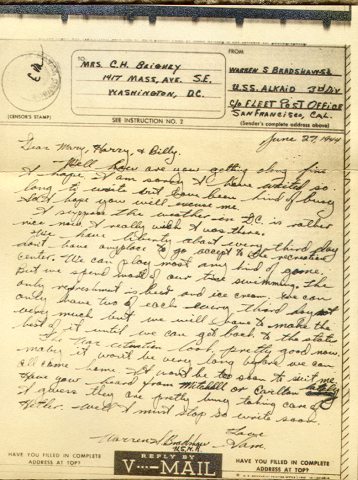 TO:
MRS. C.H. BEIGHEY
1417 MASS. AVE. S.E.
WASHINGTON, D.C.
FROM
WARREN S BRADSHAW
U.S.S. ALKAID 3rd DIV
C/o FLEET POST OFFICE
SAN FRANCISCO, CAL.
(CENSOR'S STAMP)
SEE INSTRUCTION NO. 2
(Sender's complete address above)
June 27, 1944
Dear Mary, Harry, & Billy,
Well how are you getting along fine
I hope. I am sorry I have waited so
long to write but have been kind of busy
so I hope you will excuse me.
I suppose the weather in D.C. is rather
nice now I really wish I was there.
We have liberty about every third day
don't have anyplace to go except to the recreation
center. We can play most any kind of game.
But we spend most of our time swimming. The
only refreshment is beer and ice cream. We can
only have two of each every third day not
very much but we will have to make the
best of it until we can get back to the states.
The war situation looks pretty good now.
maybe it won't be very long before we can
all come home. It won't be too soon to suit me.
Have you heard from Mitchell or Carlton lately
I guess they are pretty busy taking care of
Hitler. Well I must stop so write soon.
Love
Sam
Warren S Bradshaw
U.S.N.R.
HAVE YOU FILLED IN COMPLETE
ADDRESS AT TOP?
REPLY BY
V···—MAIL
HAVE YOU FILLED IN COMPLETE
ADDRESS AT TOP?